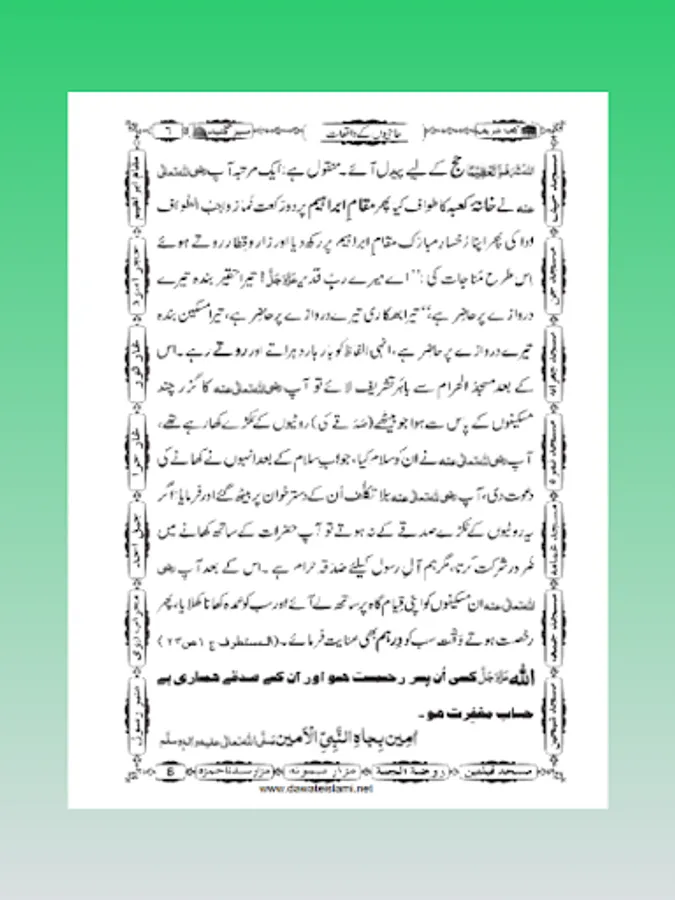 ٦ سبز گنبد حاضریوں کے واقعات کعبہ شریف
حج کے لیے پیدل آئے۔ منقول ہے: ایک مرتبہ آپ رضی اللہ تعالیٰ
عنہ نے خانۂ کعبہ کا طواف کیا پھر مقامِ ابراہیم پر دو رکعت نماز واجبُ الطواف
ادا کی پھر اپنا رُخسارِ مبارک مقامِ ابراہیم پر رکھ دیا اور زار و قطار روتے ہوئے
اِس طرح مُناجات کی: ’’اے میرے ربِّ قدیر عزوجل! تیرا حقیر بندہ تیرے
دروازے پر حاضِر ہے،‘‘ تیرا بھکاری تیرے دروازے پر حاضِر ہے، تیرا مسکین بندہ
تیرے دروازے پر حاضِر ہے، انہی الفاظ کو بار بار دہراتے اور روتے رہے۔ اس
کے بعد مسجدُ الحرام سے باہَر تشریف لائے تو آپ رضی اللہ تعالیٰ عنہ کا گزر چند
مسکینوں کے پاس سے ہوا جو بیٹھے (صَدَقے کی) روٹیوں کے ٹکڑے کھا رہے تھے،
آپ رضی اللہ تعالیٰ عنہ نے ان کو سلام کیا، جوابِ سلام کے بعد انہوں نے کھانے کی
دعوت دی، آپ رضی اللہ تعالیٰ عنہ بلا تکلُّف اُن کے دسترخوان پر بیٹھ گئے اور فرمایا: اگر
یہ روٹیوں کے ٹکڑے صدقے کے نہ ہوتے تو آپ حضرات کے ساتھ کھانے میں
ضَرور شرکت کرتا، مگر ہم آلِ رسول کیلئے صَدَقہ حرام ہے۔ اس کے بعد آپ رضی
اللہ تعالیٰ عنہ ان مسکینوں کو اپنی قِیام گاہ پر ساتھ لے آئے اور سب کو عمدہ کھانا کھلایا، پھر
رخصت ہوتے وَقت سب کو دِرہَم بھی عنایت فرمائے۔ (المستطرف ج ۱ ص ۲۳)
اللہ عزوجل کی اُن پر رحمت ہو اور ان کے صدقے ہماری بے
حساب مغفِرت ہو۔
امِین بِجاہِ النَّبِیِّ الْاَمین صلی اللہ تعالیٰ علیہ واٰلہٖ وسلم
مقام ابراهیم
حجر اسود
غار ثور
غار حرا
جبل احد
محراب نبوی
منبر رسول
مسجد جن
مسجد جعرانہ
مسجد نمرہ
مسجد غمامہ
مسجد شیخین
6 مزار سیدنا حمزہ مزار میمونہ روضة الجنة مسجد قبلتین
www.dawateislami.net